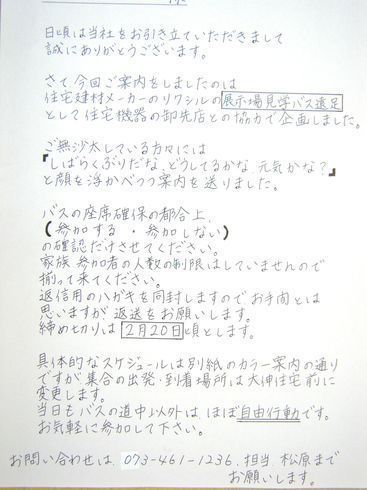 日頃は当社をお引き立ていただきまして
誠にありがとうございます。
さて今回ご案内をしましたのは
住宅建材メーカーのリクシルの展示場見学バス遠足
として住宅機器の卸先店との協力で企画しました。
ご無沙太している方々には
「しばらくぶりだな、どうしてるかな 元気かな?」
と顔を浮かべつつ案内を送りました。
バスの座席確保の都合上、
(参加する ・ 参加しない)
の確認だけさせてください。
家族、参加者の人数の制限はしていませんので
揃って来てください。
返信用のハガキを同封しますのでお手間とは
思いますが、返送をお願いします。
締め切りは2月20日頃とします。
具体的なスケジュールは別紙のカラー案内の通り
ですが集合の出発・到着場所は大伸住宅前に
変更します。
当日もバスの道中以外は、ほぼ自由行動です。
お気軽に参加して下さい。
お問い合わせは、073-461-1236、担当 松原まで
お願いします。